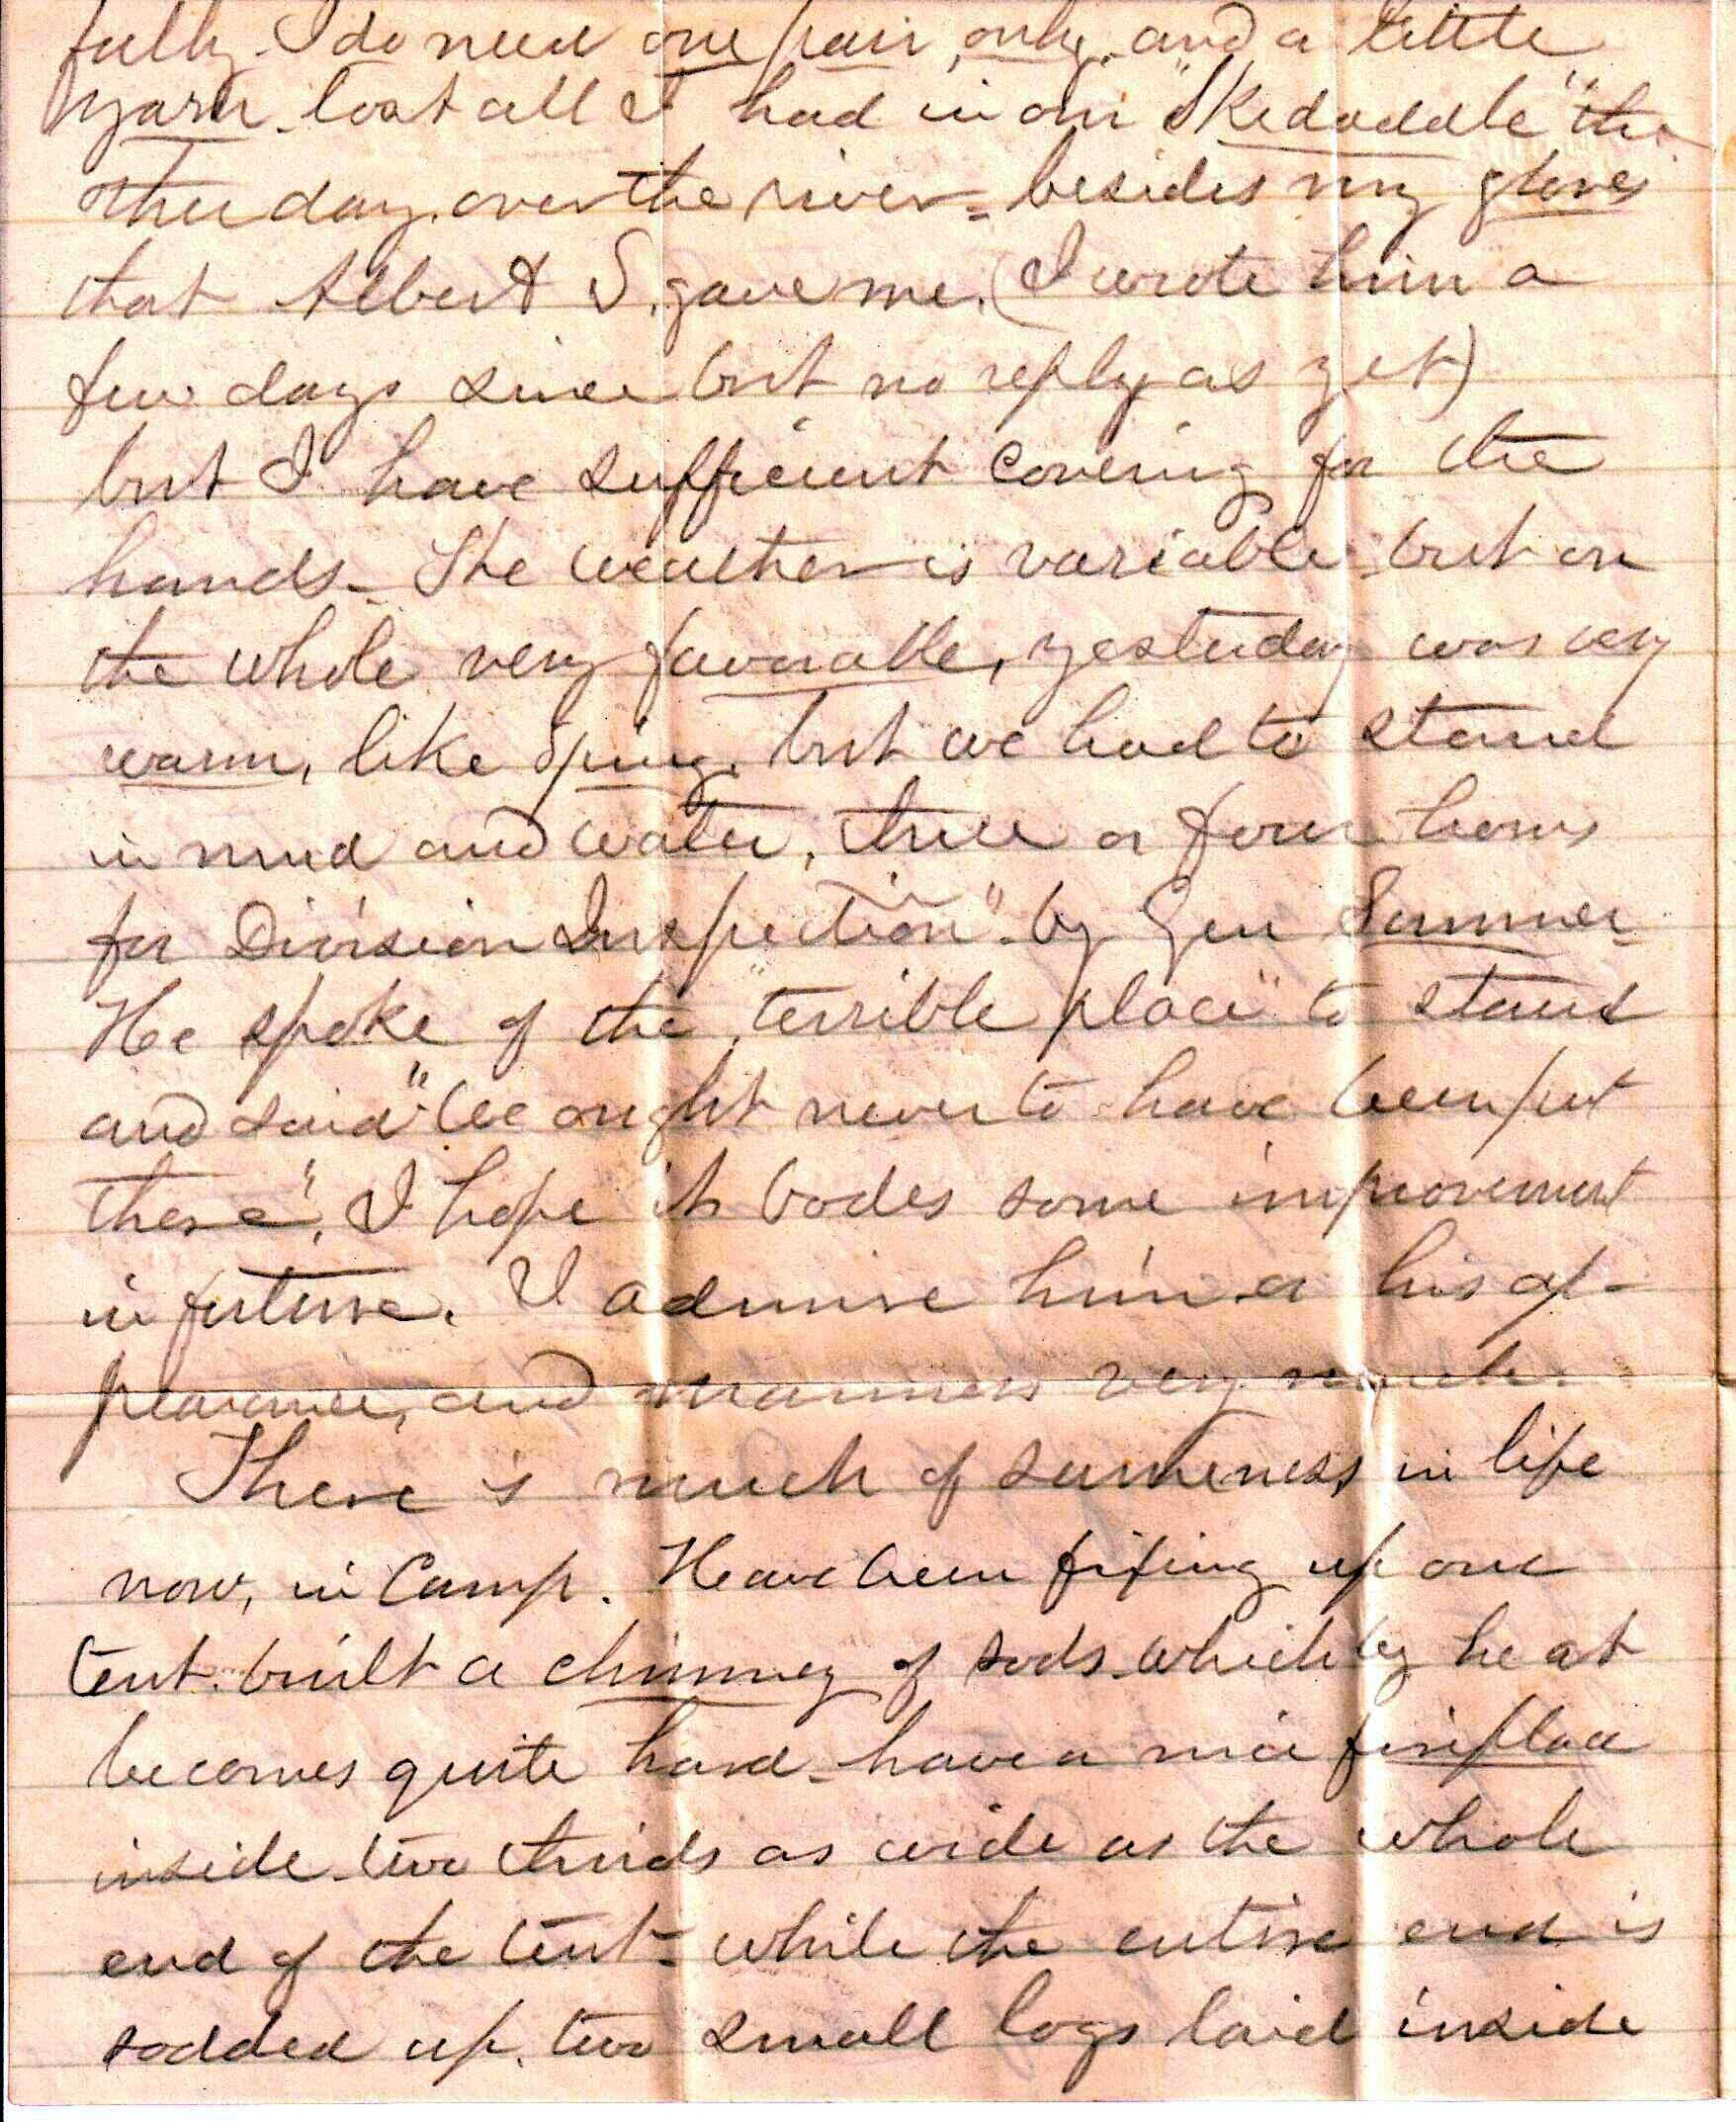 fully. I do need one pair, only, and a little
yarn. lost all I had in our "Skedaddle" the
other day. over the river - besides my gloves
that Albert S. gave me. (I wrote him a
few days since but no reply as yet)
but I have sufficient covering for the
hands - The weather is variable but on
the whole very favorable, yesterday was very
warm, like Spring. but we had to stand
in mud and water, three or four hours
for Division Inspection" - by Gen Sumner.
He spoke of the "terrible place" to stand
and said "We ought never to have been put
there", I hope it bodes some improvement
in future. I admire him & his ap-
pearance, and manners very much.
There is much of sameness in life
now, in Camp. Have been fixing up our
tent. built a chimney of sods which by heat
becomes quite hard - have a nice fireplace
inside two thirds as wide as the whole
end of the tent - while the entire end is
sodded up. two small logs laid inside